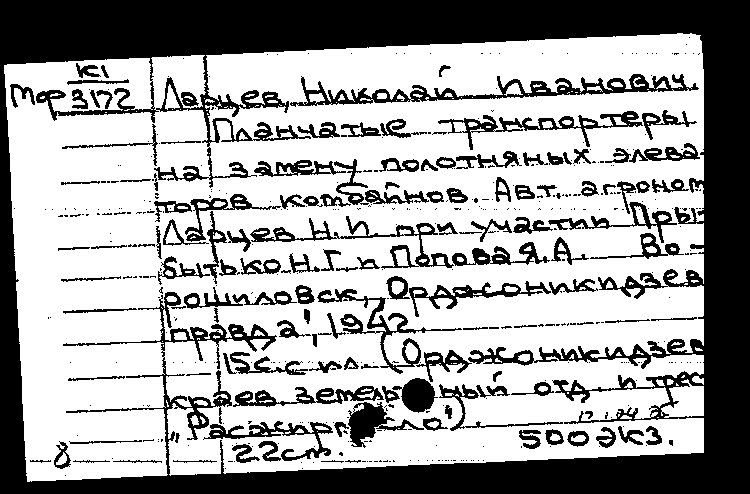 К1
Мор 3172
Ларцев, Николай Иванович.
Планчатые транспортеры
на замену полотняных элева-
торов комбайнов. Авт. агроном
Ларцев Н.И. при участии Пры-
бытько Н.Г. и Попова Я.А. Во-
рошиловск, "Орджоникидзев
правда", 1942.
15с. с ил. (Орджоникидзев
краев. земель ный отд. и трест
").
22 см. 500 экз.
8